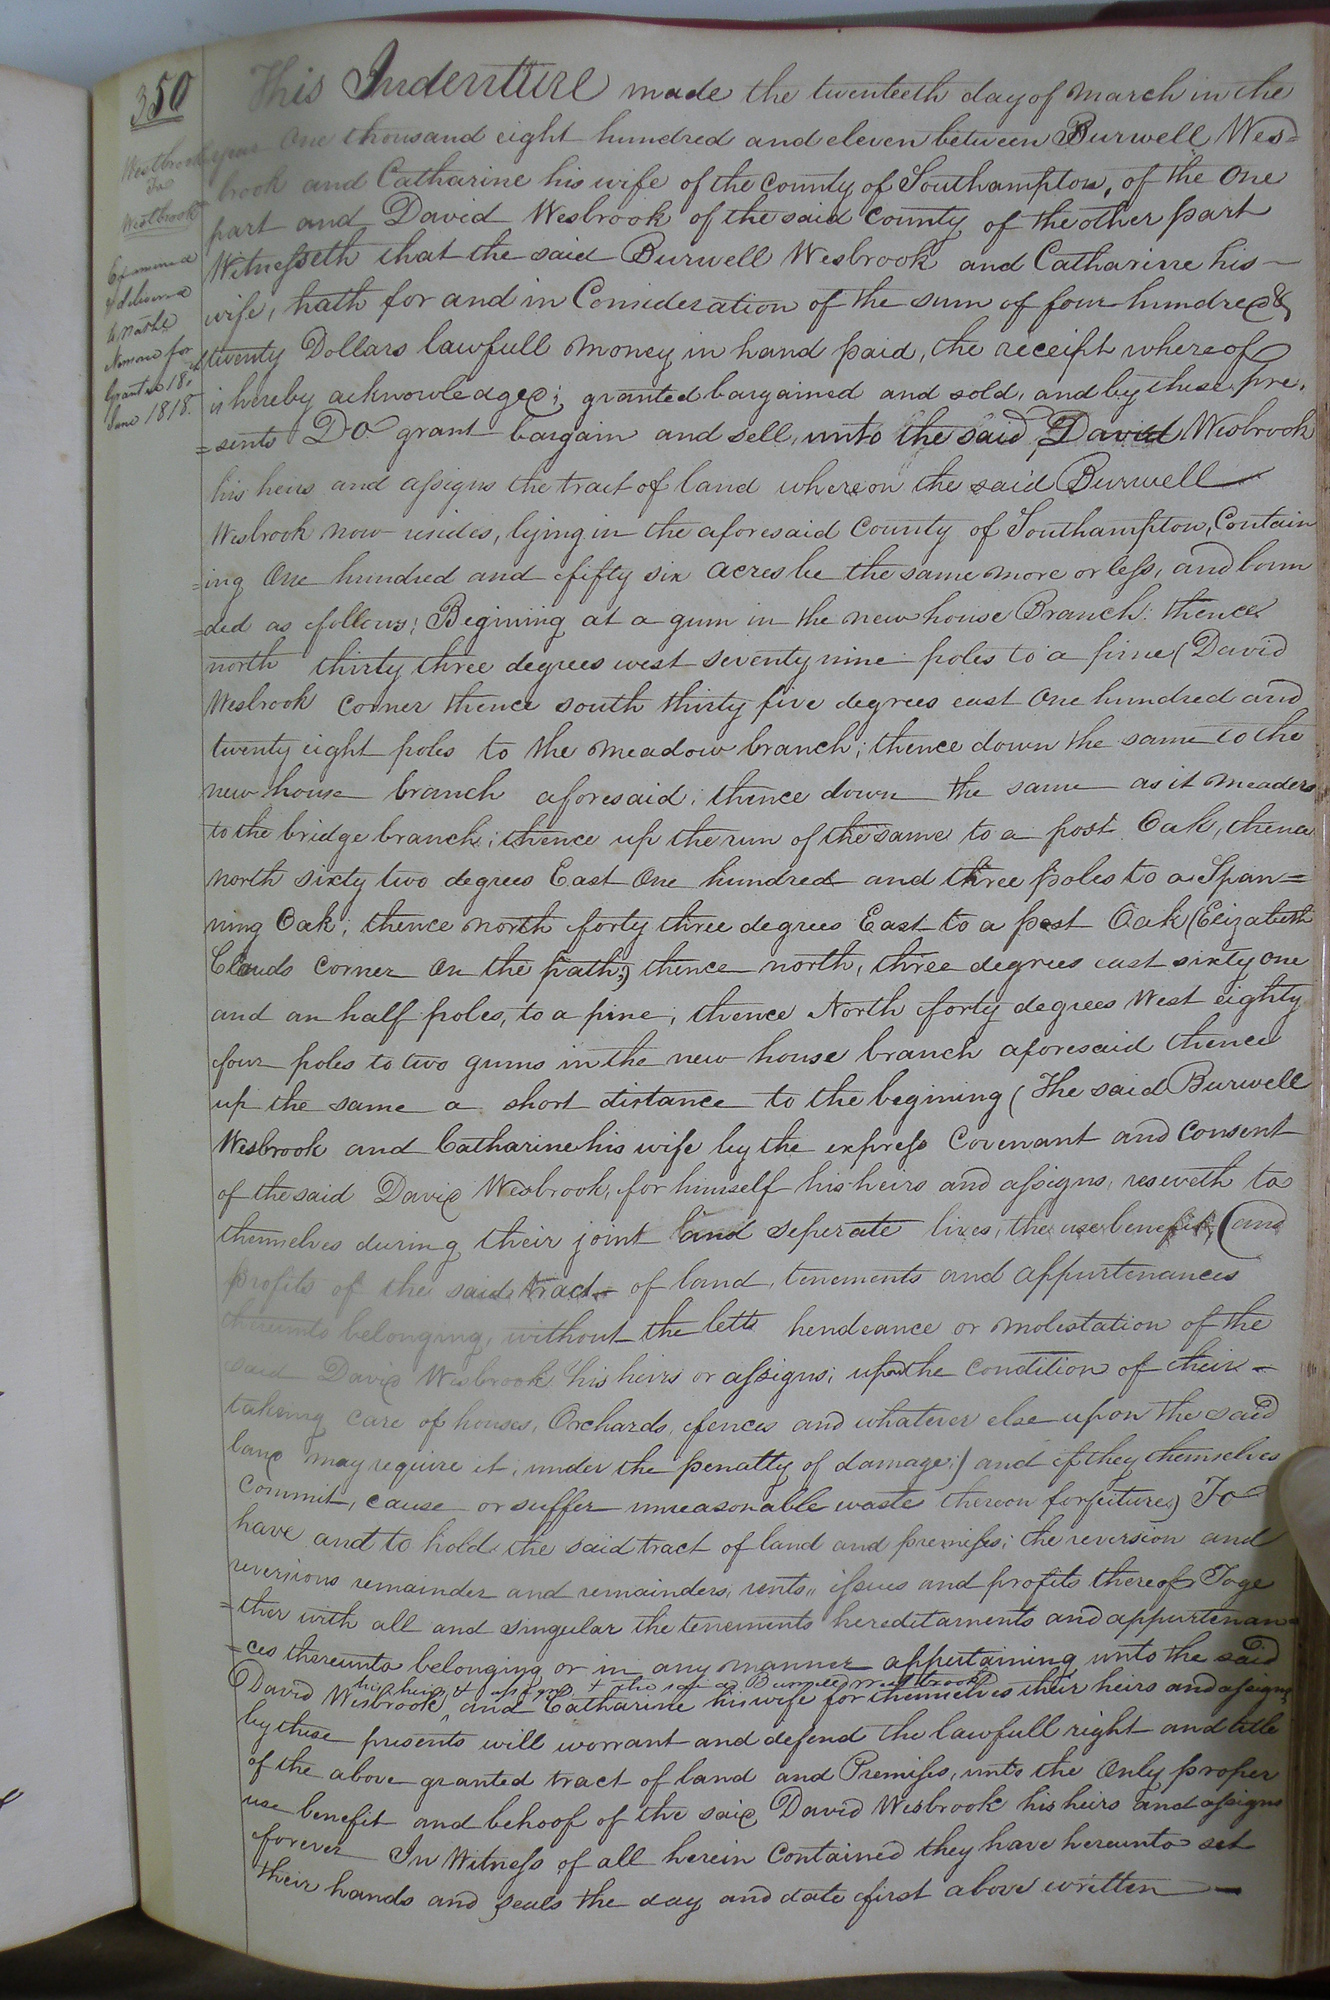 350
Westbrook
To
Westbrook
Examined
& delivered
to Mathe
Nemow for
Grantee 18th
June 1818.
This Indenture made the twenteeth day of March in the
year One thousand eight hundred and eleven between Burwell Wes=
brook and Catharine his wife of the County of Southampton, of the One
part and David Wesbrook of the said County of the other part
Witnesseth that the said Burwell Wesbrook and Catharine his
wife, hath for and in Consideration of the sum of four hundred &
twenty Dollars lawfull money in hand paid, the receipt whereof
is hereby acknowledged; granted bargained and sold, and by these pre,
=sents Do grant bargain and sell, unto the said David Wesbrook
his heirs and assigns the tract of land whereon the said Burwell
Wesbrook now resides, lying in the aforesaid County of Southampton, Contain
=ing One hundred and fifty six acres be the same more or less, and boun
=ded as follows; Begining at a gum in the new house Branch: thence
north thirty three degrees west seventy nine poles to a pine (David
Wesbrook corner thence south thirty five degrees east One hundred and
twenty eight poles to the meadow branch; thence down the same to the
new house branch aforesaid; thence down the same as it meaders
to the bridge branch; thence up the run of the same to a post Oak, thence
north sixty two degrees East One hundred and three poles to a Span=
ning Oak; thence north forty three degrees East to a post Oak (Elizabeth
Clauds corner On the path;) thence north, three degrees east sixty one
and an half poles, to a pine; thence North forty degrees West eighty
four poles to two gums in the new house branch aforesaid thence
up the same a short distance to the begining (The said Burwell
Wesbrook and Catharine his wife by the express Covenant and Consent
of the said David Wesbrook, for himself his heirs and assigns, reseveth to
themselves during their joint and seperate lives, the use benefit, (and
profits of the said tract of land, tenements and appurtenances
thereunto belonging, without the letts hendeance or molestation of the
said David Wesbrook his heirs or assigns; upon the condition of their
takeing care of houses, Orchards, fences and whatever else upon the said
land may require it, under the penalty of damage;) and if they themselves
commit, cause or suffer unreasonable waste thereon forfeiture;) To
have and to hold the said tract of land and premises; the reversion and
reversions remainder and remainders, rents,, issues and profits thereof Toge
=ther with all and singular the tenements hereditaments and appurtenan=
=ces thereunto belonging or in any manner appertaining unto the said
his heirs & assigns & the said Burwell Westbrook
David Wesbrook, and Catharine his wife for themselves their heirs and assigns
by these presents will worrant and defend the lawfull right and title
of the above granted tract of land and Premises, unto the Only proper
use benefit and behoof of the said David Wesbrook his heirs and assigns
forever In Witness of all herein Contained they have hereunto set
their hands and seals the day and date first above written